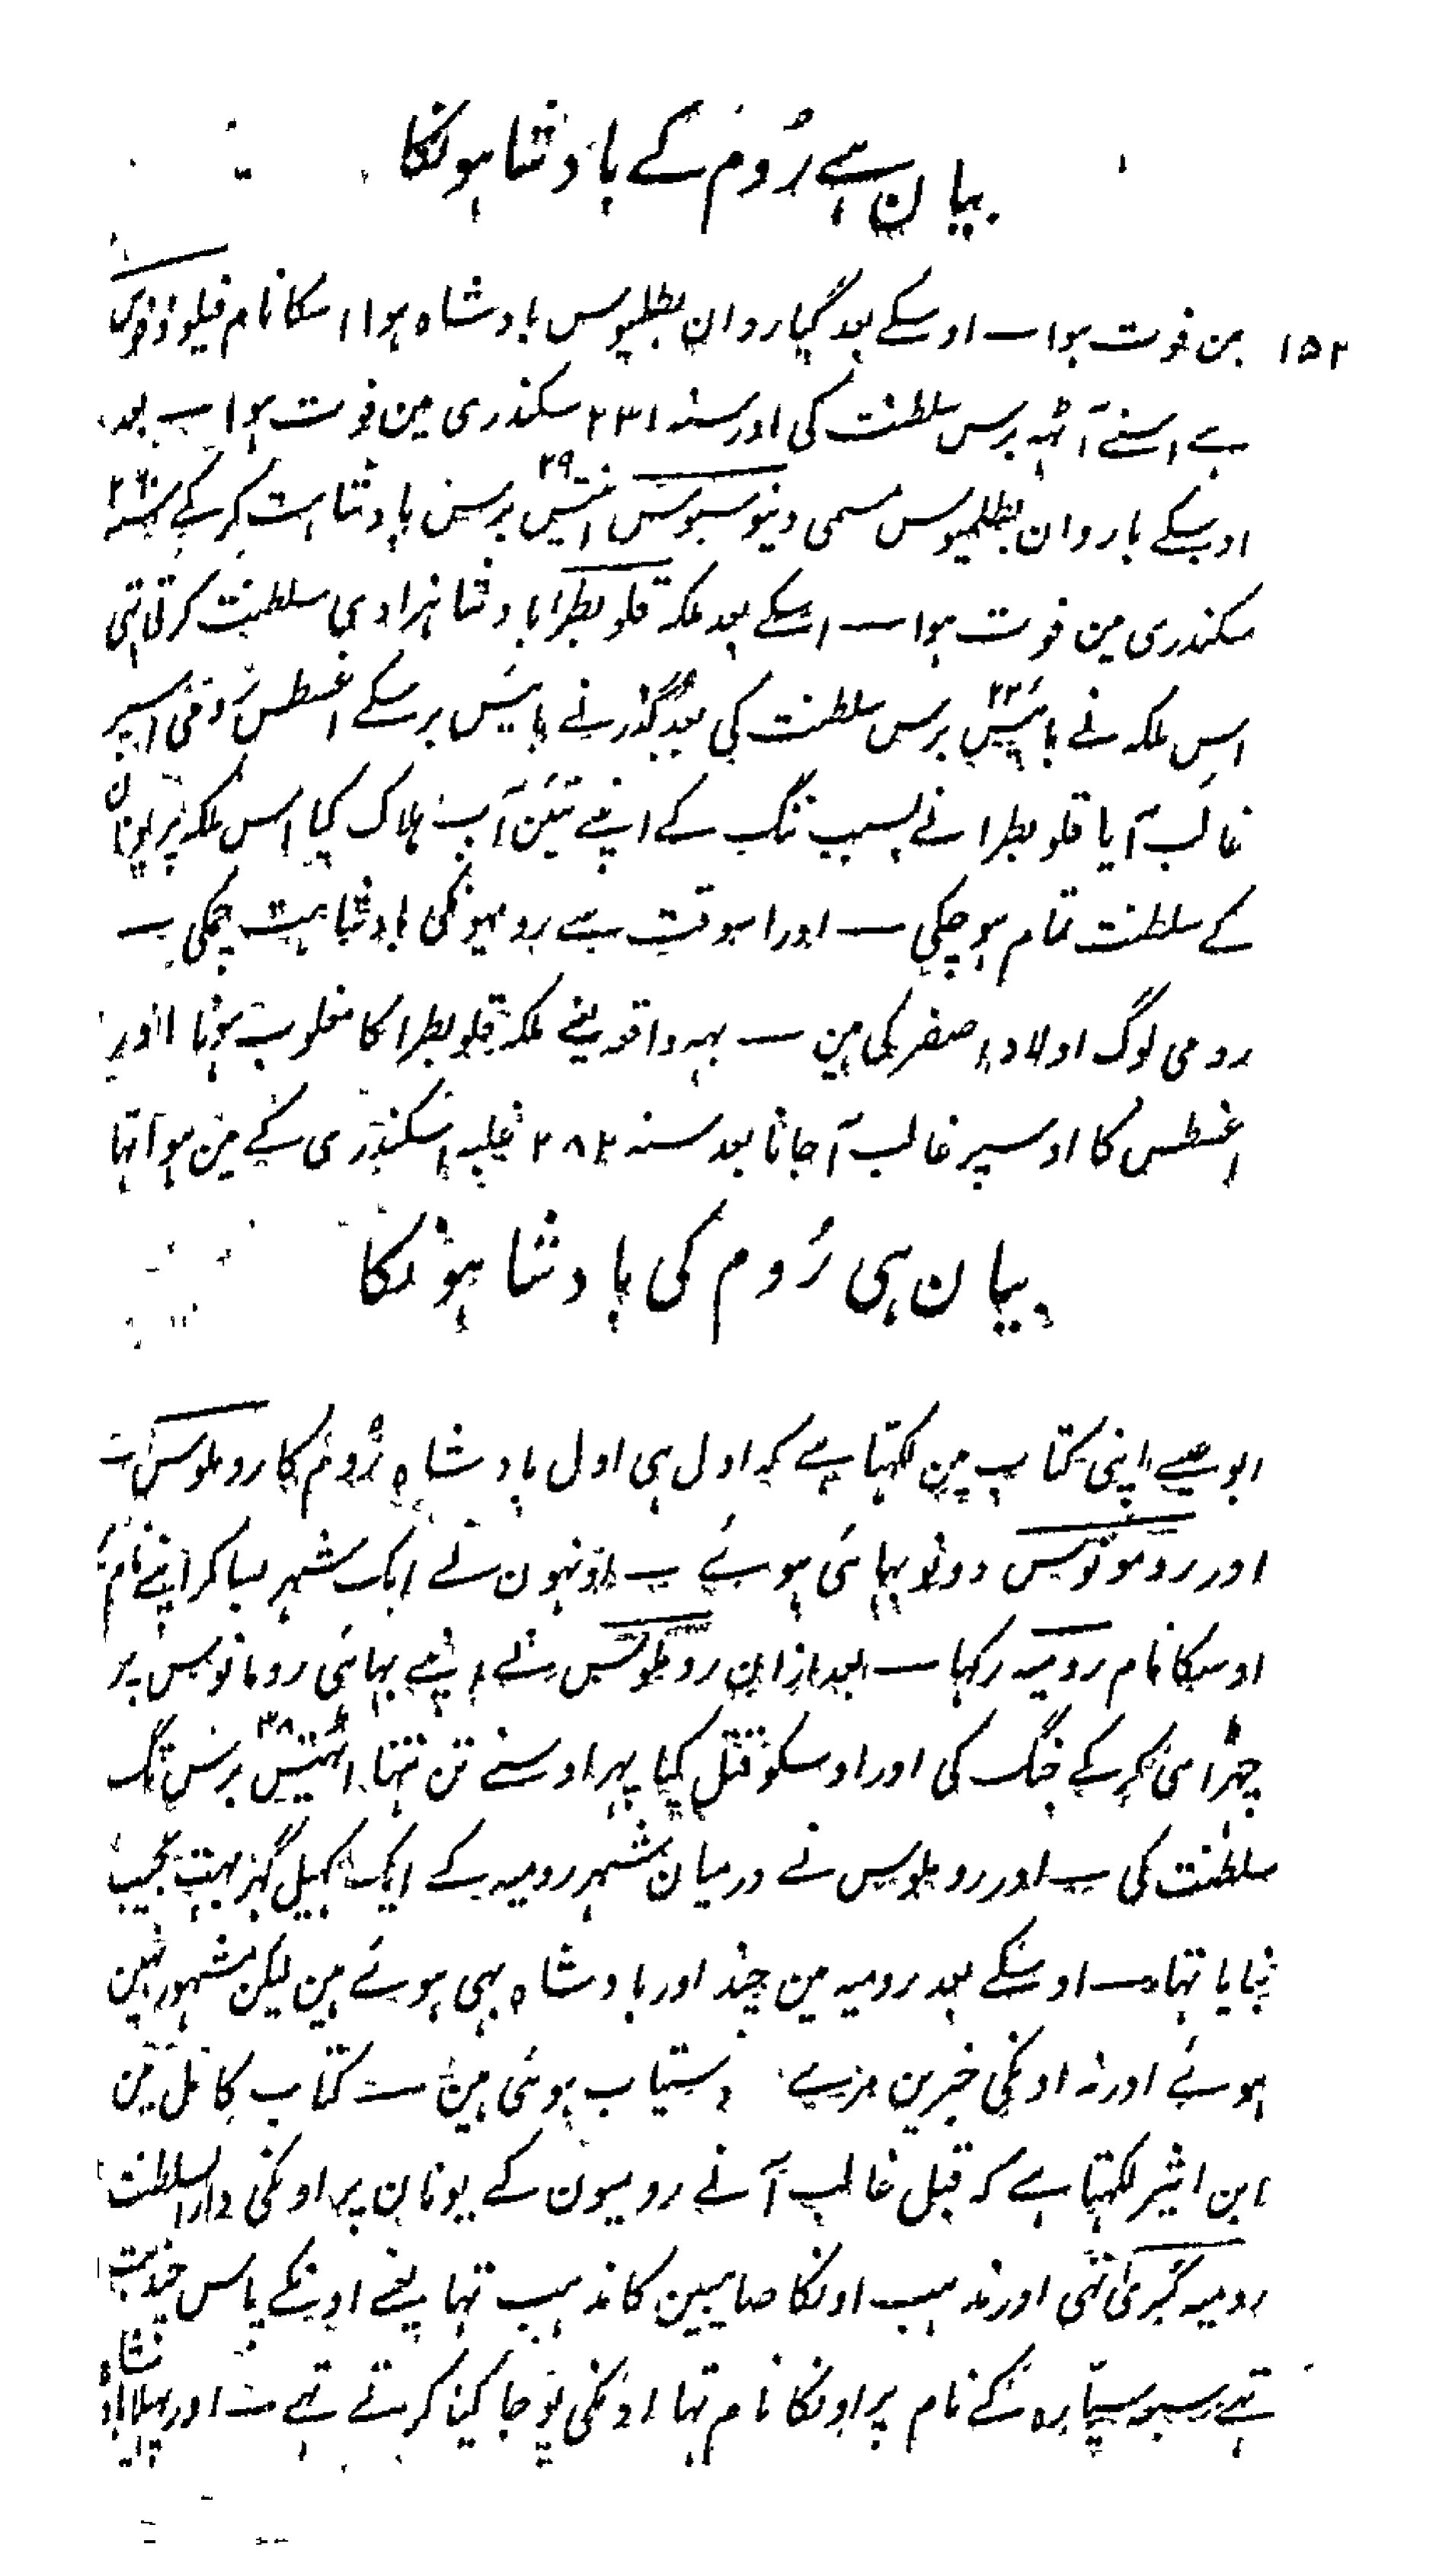 بیان ہے رُوم کے بادشاہونکا
۱۵۲ مین فوت ہوا۔ اوسکے بعد گیاروان بطلیوس بادشاہ ہوا اسکا نام فیلوذفوس
ہے اسنے آٹھہ برس سلطنت کی اور سنہ ۲۳۱ سکندری مین فوت ہوا۔ بعد
اوسکے باروان بطلمیوس مسمی دینوسیوس انتیس ۲۹ برس بادشاہت کرکے سنہ ۲۶۰
سکندری مین فوت ہوا۔ اسکے بعد ملکہ قلوبطرا بادشاہزادی سلطنت کرتی تہی
اس ملکہ نے بائیس ۲۲ برس سلطنت کی بعد گذرنے بائیس برسکے اغسطس رومی اسپر
غالب آیا قلوبطرا نے بسبب ننگ کے اپنے تئین آپ ہلاک کیا اس ملکہ پر یونان
کے سلطنت تمام ہوچکی۔ اور اسوقت سے رومیونکی بادشاہت چمکی۔
رومی لوگ اولاد اصفر کی ہین۔ یہہ واقعہ یعنے ملکہ قلوبطرا کا مغلوب ہونا اور
اغسطس کا اوسپر غالب آجانا بعد سنہ ۲۸۲ غلبہ اسکندری کے مین ہوا تہا
بیان ہی رُوم کی بادشاہونکا
ابو عیسے اپنی کتاب مین لکہتا ہے کہ اول ہی اول بادشاہ رُوم کا روملوس۔
اور رومونوس دونو بہائی ہوئے۔ اونہون نے ایک شہر بسا کر اپنے نام
اوسکا نام رومیہ رکہا۔ بعد ازان روملوس نے اپنے بہائی رومانوس پر
چڑائی کرکے جنگ کی اور اوسکو قتل کیا پہر اوسنے تن تنہا اڑتیس ۳۸ برس تک
سلطنت کی۔ اور روملوس نے درمیان شہر رومیہ کے ایک کہیل گہر بہت عجیب
بنایا تہا۔ اوسکے بعد رومیہ مین چند اور بادشاہ بہی ہوئے ہین لیکن مشہور نہین
ہوئے اور نہ اونکی خبرین ہمسے دستیاب ہوئی ہین۔ کتاب کامل مین
ابن اثیر لکہتا ہے کہ قبل غالب آنے رومیون کے یونان پر اونکی دارالسلطنت
رومیہ کبریٰ تہی اور مذہب اونکا صابیین کا مذہب تہا یعنے اونکے پاس چند بت
تہے سبعہ سیارہ کے نام پر اونکا نام تہا اونکی پوجا کیا کرتے تہے۔ اور پہلا بادشاہ